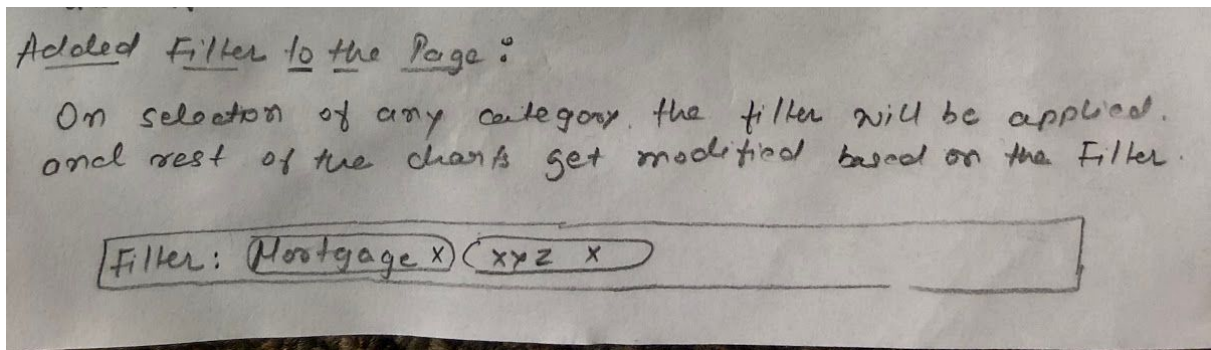 Added Filter to the Page :
On selection of any category. the filter will be applied.
and rest of the charts get modified based on the Filter.
Filter: Mortgage x xyz x